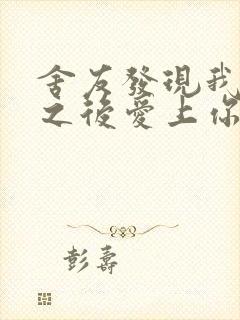 舍友發現我
之後愛上你
彭壽